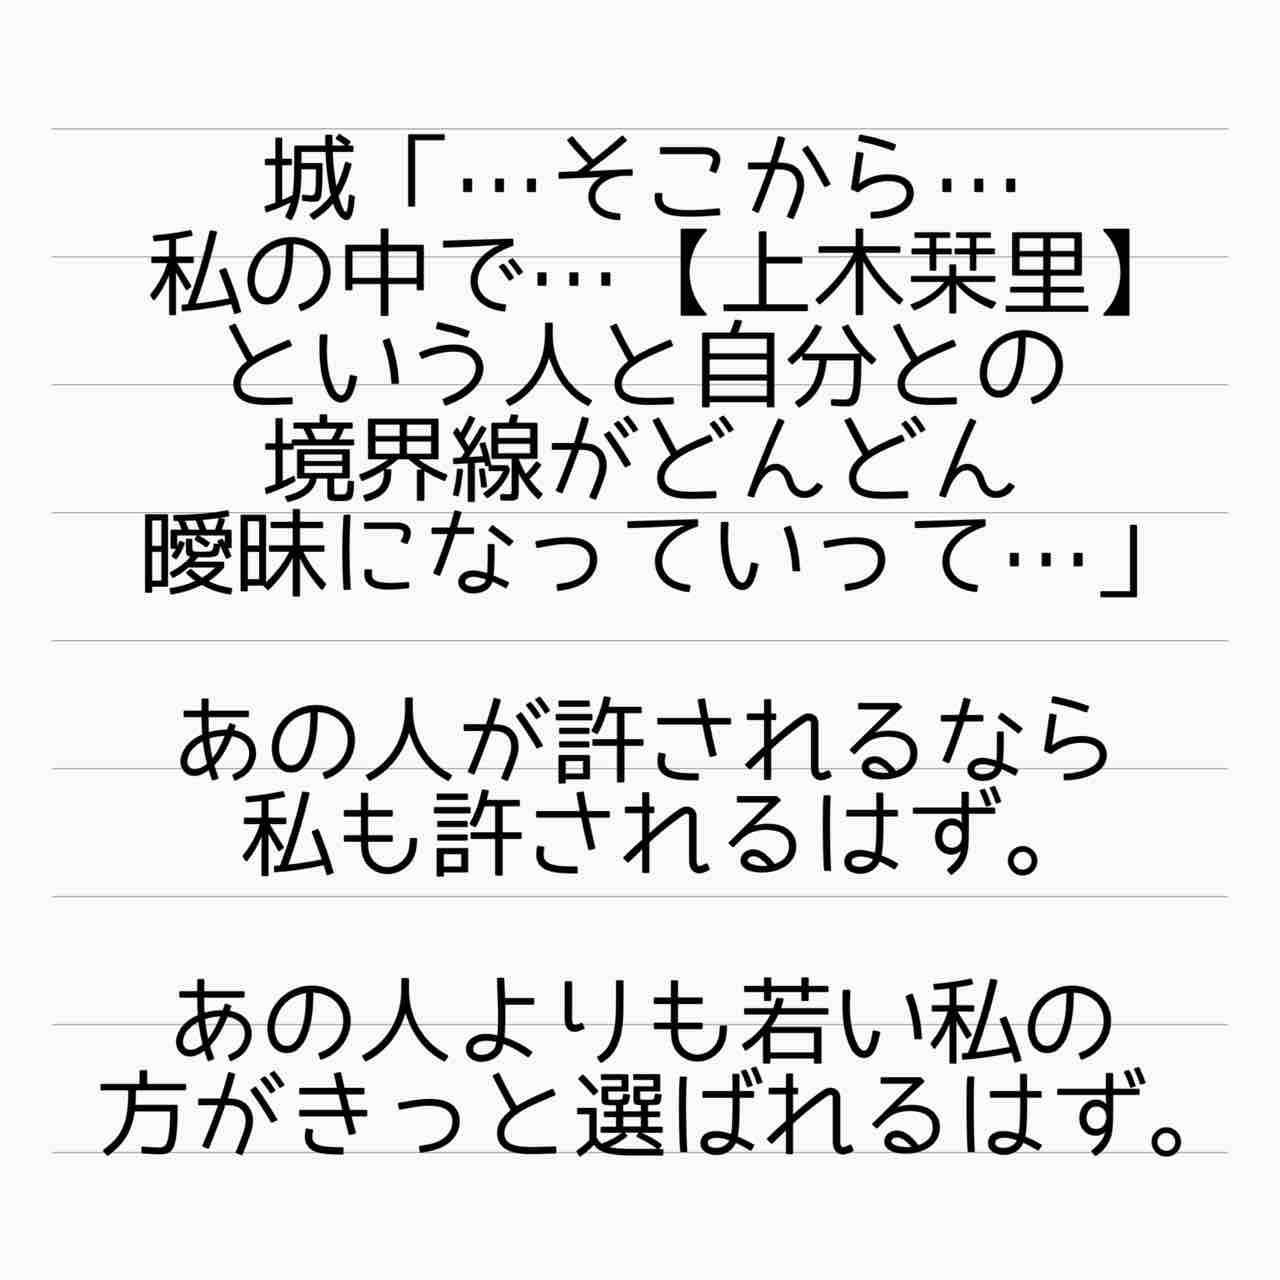 城「…そこから…
私の中で…【上木栞里】
という人と自分との
境界線がどんどん
曖昧になっていって…」
あの人が許されるなら
私も許されるはず。
あの人よりも若い私の
方がきっと選ばれるはず。